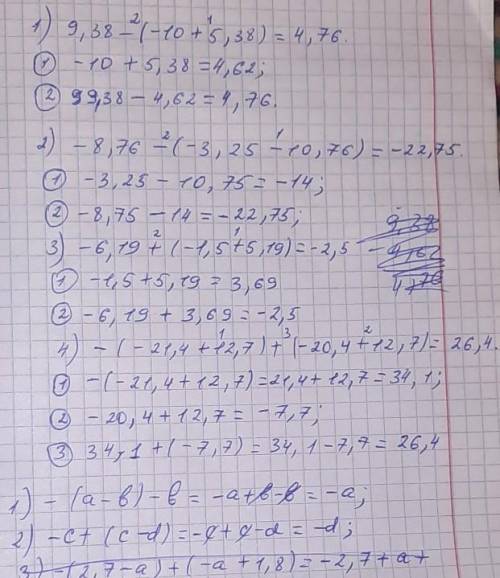 1) 9,38 - (-10 + 5,38) = 4,76.
① -10 + 5,38 = 4,62;
② 99,38 - 4,62 = 4,76.
2) -8,76 - (-3,25 - 10,76) = -22,75.
① -3,25 - 10,75 = -14;
② -8,75 - 14 = -22,75;
3) -6,19 + (-1,5 + 5,19) = -2,5
① -1,5 + 5,19 = 3,69
② -6,19 + 3,69 = -2,5
4) -(-21,4 + 12,7) + (-20,4 + 12,7) = 26,4.
① -(-21,4 + 12,7) = 21,4 + 12,7 = 34,1;
② -20,4 + 12,7 = -7,7;
③ 34,1 + (-7,7) = 34,1 - 7,7 = 26,4
1) -(a-b)-b = -a+b-b = -a;
2) -c+(c-d) = -c+c-d = -d;
3) -(2,7-a)+(-a+1,8) = -2,7+a+